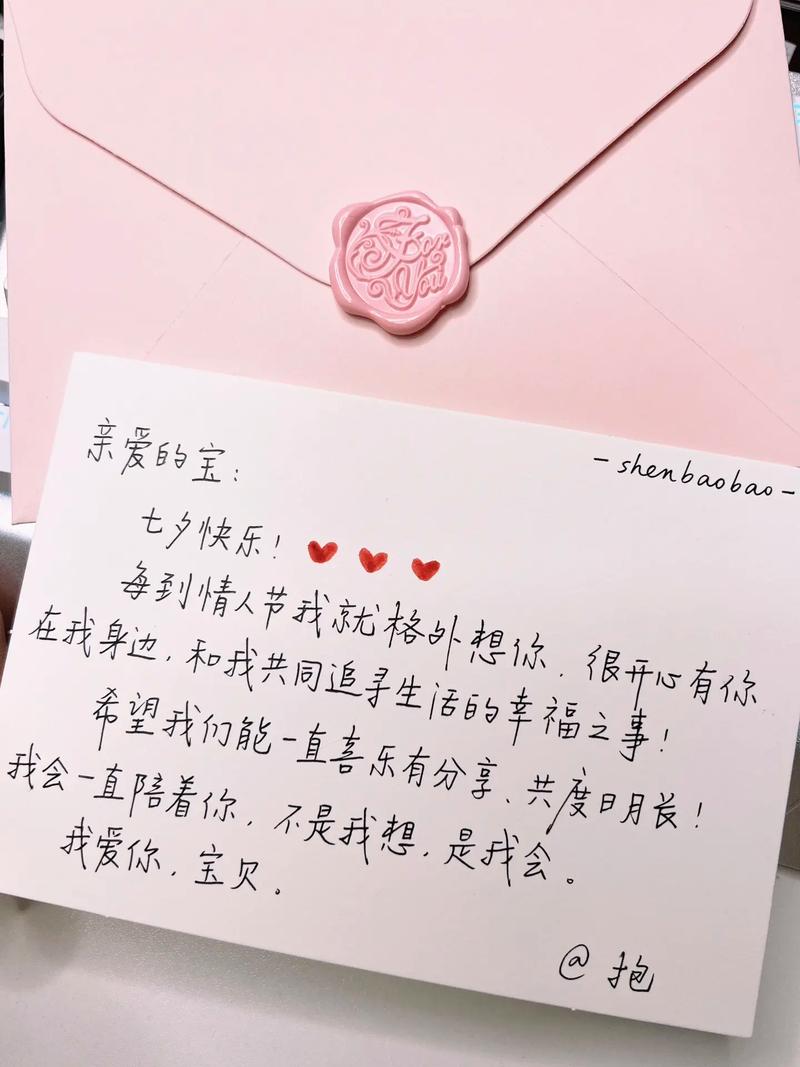 For
You
亲爱的宝：
- shenbaobao -
七夕快乐！
每到情人节我就格外想你，很开心有你
在我身边，和我共同追寻生活的幸福之事！
希望我们能一直喜乐有分享、共度日月长！
我会一直陪着你，不是我想，是我会。
我爱你，宝贝。
@抱